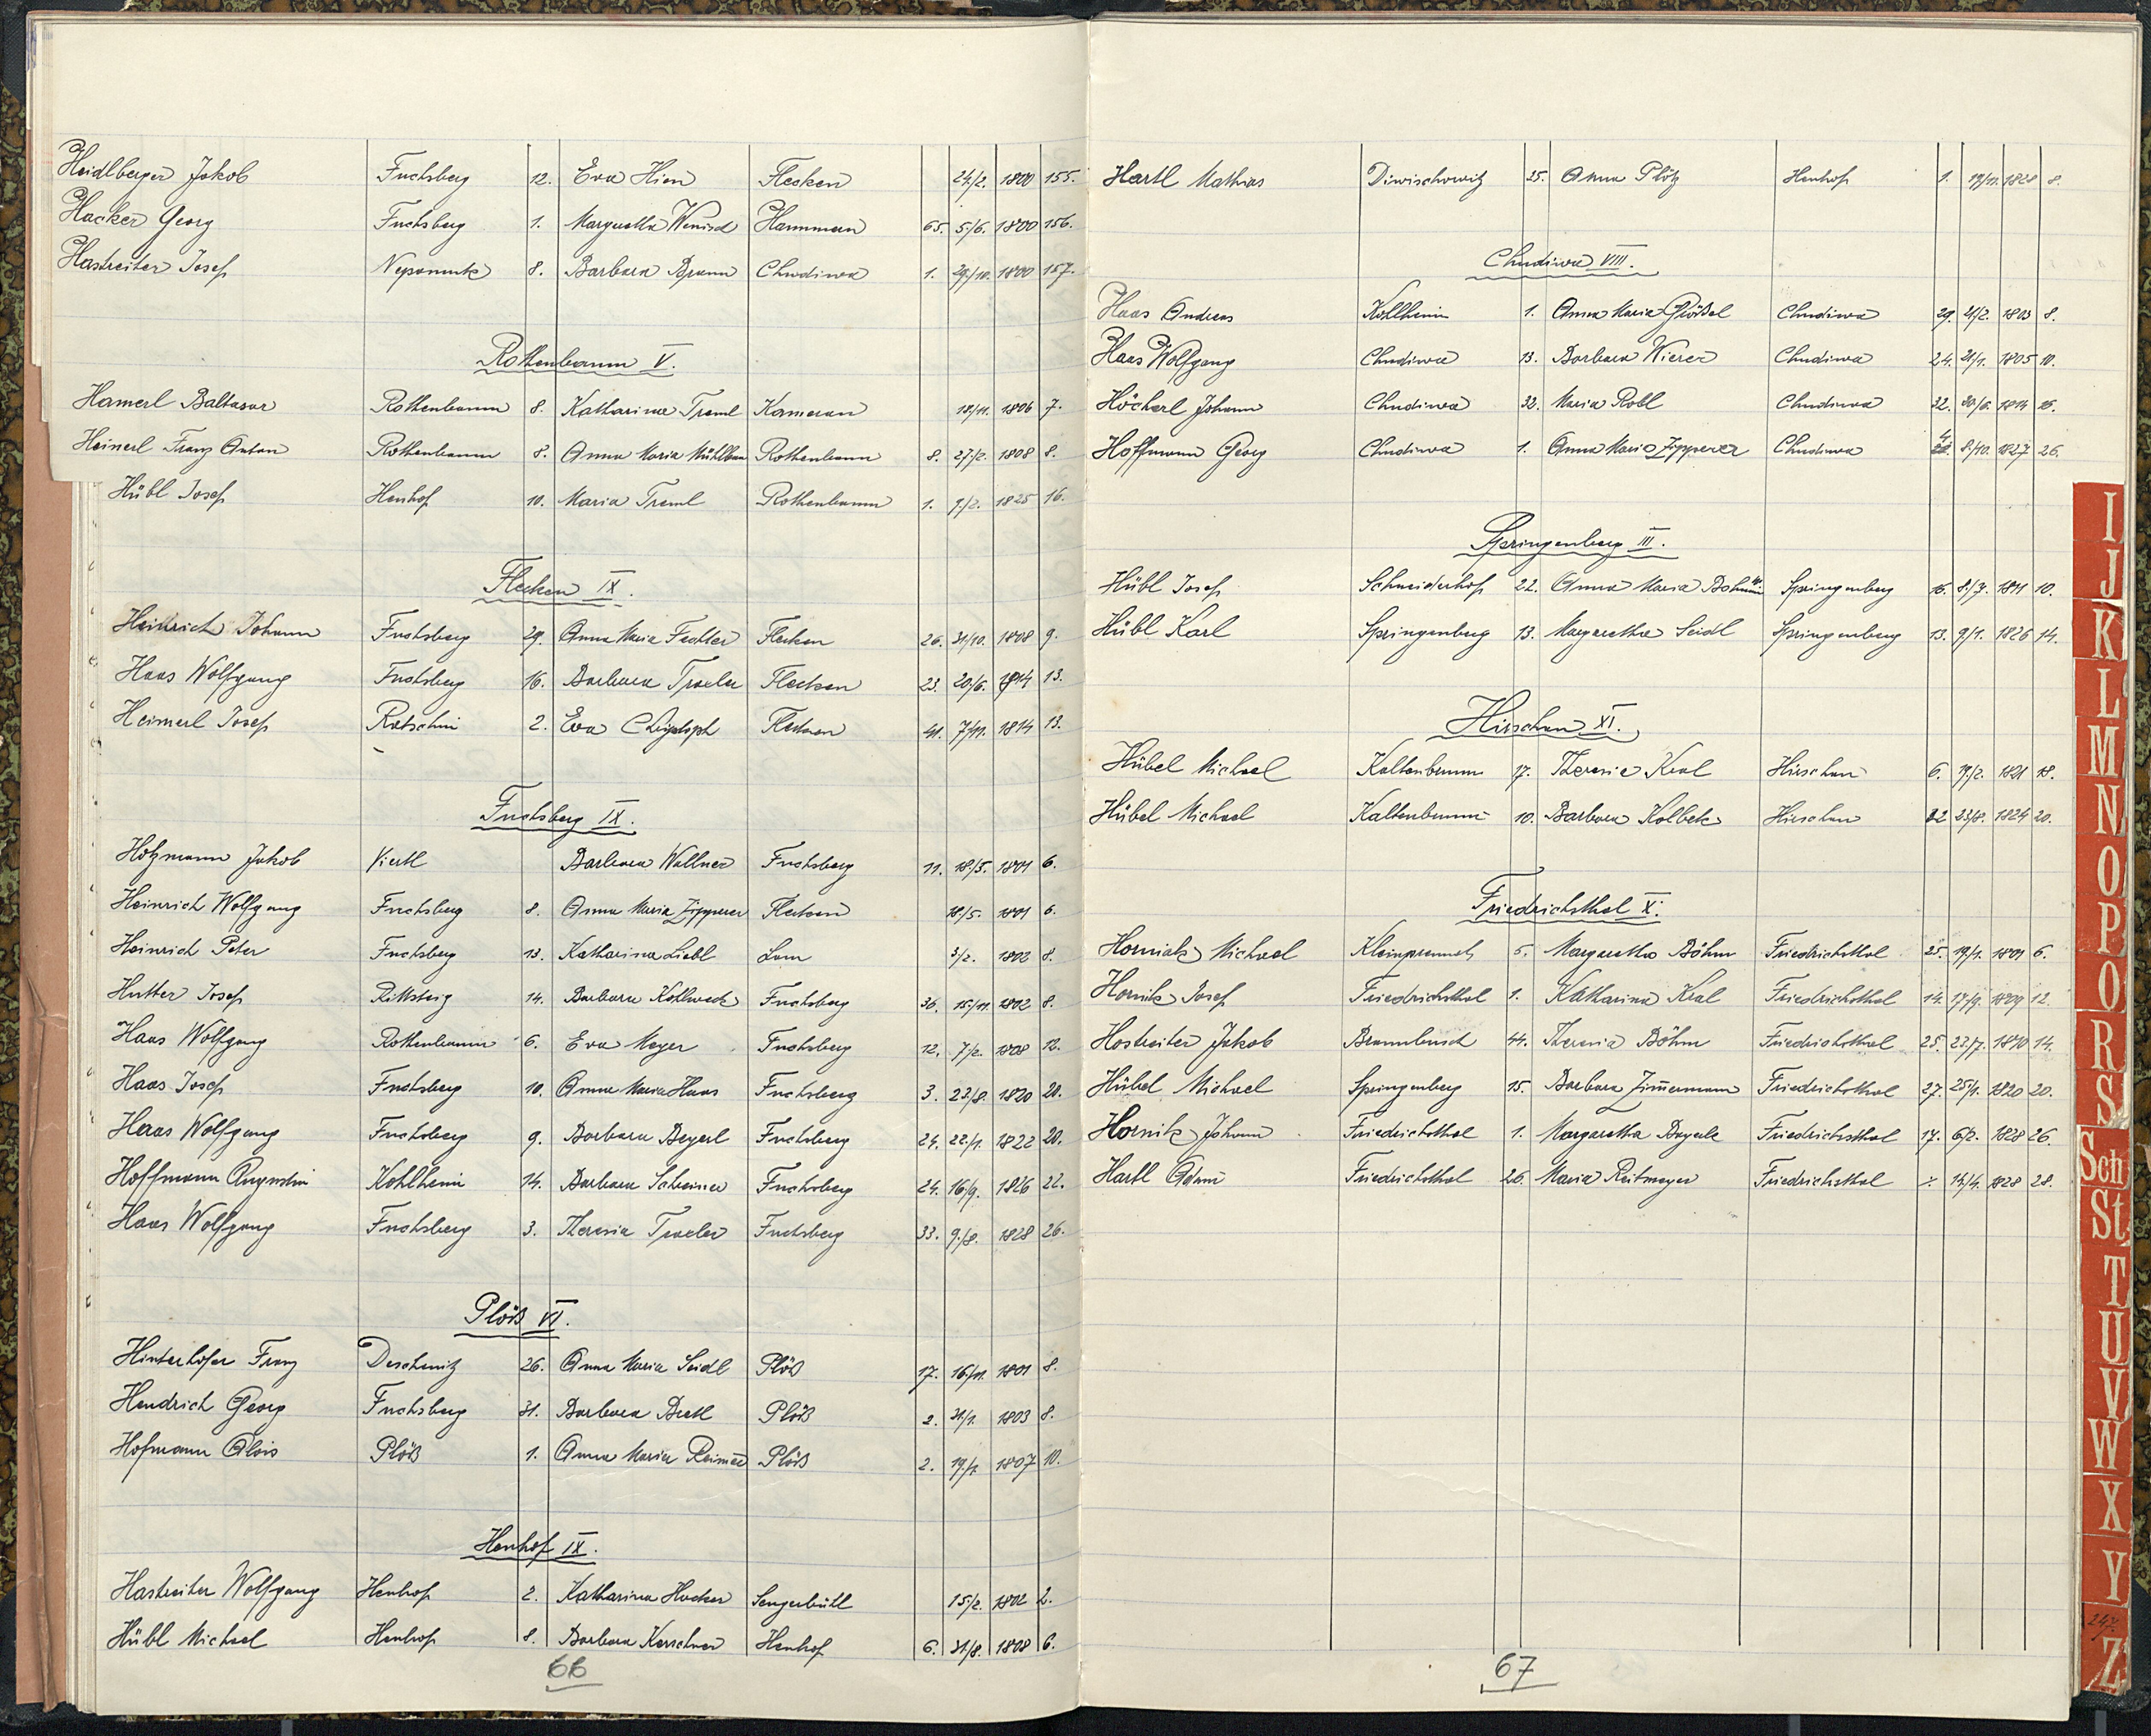 Heidlberger Jakob Fuchsberg 12. Eva Hien Flecken 24/2. 1800 155.
Hacker Georg Fuchsberg 1. Margaretha Wenisch Hammern 65. 5/6. 1800 156.
Hastreiter Josef Nepomuk 8. Barbara Braun Chudiwa 1. 29/10. 1800 157.
Rothenbaum V.
Hamerl Baltasar Rothenbaum 8. Katharina Treml Kameran 18/11. 1806 7.
Heinerl Franz Anton Rothenbaum 8. Anna Maria Mühlbau Rothenbaum 8. 27/2. 1808 8.
Hübl Josef Henhof 10. Maria Treml Rothenbaum 1. 9/2. 1825 16.
Flecken IX.
Heinrich Johann Fuchsberg 29. Anna Maria Fechter Flecken 26. 31/10. 1808 9.
Haas Wolfgang Fuchsberg 16. Barbara Traxler Flecken 23. 20/6. 1814 13.
Heimerl Josef Ratschin 2. Eva Christoph Flecken 41. 7/11. 1814 13.
Fuchsberg IX.
Holzmann Jakob Viertl Barbara Wallner Fuchsberg 11. 18/5. 1801 6.
Heinrich Wolfgang Fuchsberg 8. Anna Maria Zipperer Flecken 18/5. 1801 6.
Heinrich Peter Fuchsberg 13. Katharina Liebl Lam 3/2. 1802 8.
Hutter Josef Rittsteig 14. Barbara Kollweck Fuchsberg 36. 15/11. 1802 8.
Haas Wolfgang Rothenbaum 6. Eva Mayer Fuchsberg 12. 7/2. 1808 12.
Haas Josef Fuchsberg 10. Anna Maria Haas Fuchsberg 3. 22/8. 1820 20.
Heras Wolfgang Fuchsberg 9. Barbara Beyerl Fuchsberg 24. 22/1. 1822 20.
Hoffmann Augustin Kohlheim 14. Barbara Schreiner Fuchsberg 24. 16/9. 1826 22.
Haas Wolfgang Fuchsberg 3. Theresia Traxler Fuchsberg 33. 9/8. 1828 26.
Plöß VI.
Hinterhofer Franz Deschenitz 26. Anna Maria Seidl Plöß 17. 16/11. 1801 8.
Hendrich Georg Fuchsberg 31. Barbara Bretl Plöß 2. 31/1. 1803 8.
Hofmann Alois Plöß 1. Anna Maria Reimer Plöß 2. 19/1. 1807 10.
Henhof IX.
Hastreiter Wolfgang Henhof 2. Katharina Hacker Sengerbühl 15/2. 1802 2.
Hübl Michael Henhof 8. Barbara Kerschner Henhof 6. 31/8. 1808 6.
66
Hartl Mathias Diwischowitz 25. Anna Plötz Henhof 1. 19/11. 1828 8.
Chudiwa VIII.
Haas Andreas Kohlheim 1. Anna Maria Größl Chudiwa 29. 21/2. 1803 8.
Haas Wolfgang Chudiwa 13. Barbara Wierer Chudiwa 24. 21/1. 1805 10.
Höcherl Johann Chudiwa 32. Maria Robl Chudiwa 32. 20/6. 1814 16.
Hoffmann Georg Chudiwa 1. Anna Maria Zipperer Chudiwa 8/10. 1827 26.
Springenberg III.
Hübl Josef Schneiderhof 22. Anna Maria Springenberg 16. 8/7. 1811 10.
Hübl Karl Springenberg 13. Margaretha Seidl Springenberg 13. 9/1. 1826 14.
Hirschau XI.
Hübel Michael Kaltenbrunn 17. Theresia Kral Hirschau 6. 19/2. 1821 18.
Hübel Michael Kaltenbrunn 10. Barbara Kolbek Hirschau 22 23/8. 1824 20.
Friedrichsthal X.
Horniak Michael 5. Margaretha Böhm Friedrichsthal 25. 19/1. 1801 6.
Hornik Josef Friedrichsthal 1. Katharina Kral Friedrichsthal 14. 17/9. 1809 12.
Hostreiter Jakob Braunbusch 44. Theresia Böhm Friedrichsthal 25. 23/7. 1810 14.
Hübel Michael Springenberg 15. Barbara Zimmermann Friedrichsthal 27. 25/1. 1820 20.
Hornik Johann Friedrichsthal 1. Margaretha Bayerle Friedrichsthal 17. 6/2. 1828 26.
Hartl Adam Friedrichsthal 26. Maria Reitmayer Friedrichsthal 14/4. 1828 28.
67
I
J
K
L
M
N
O
P
Q
R
S
Sch
St
T
U
V
W
X
Y
247.
Z